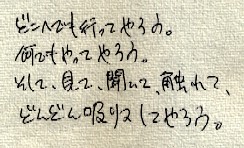 どこへでも行ってやろう。
何でもやってやろう。
そして、見て、聞いて、触れて、
どんどん吸収してやろう。